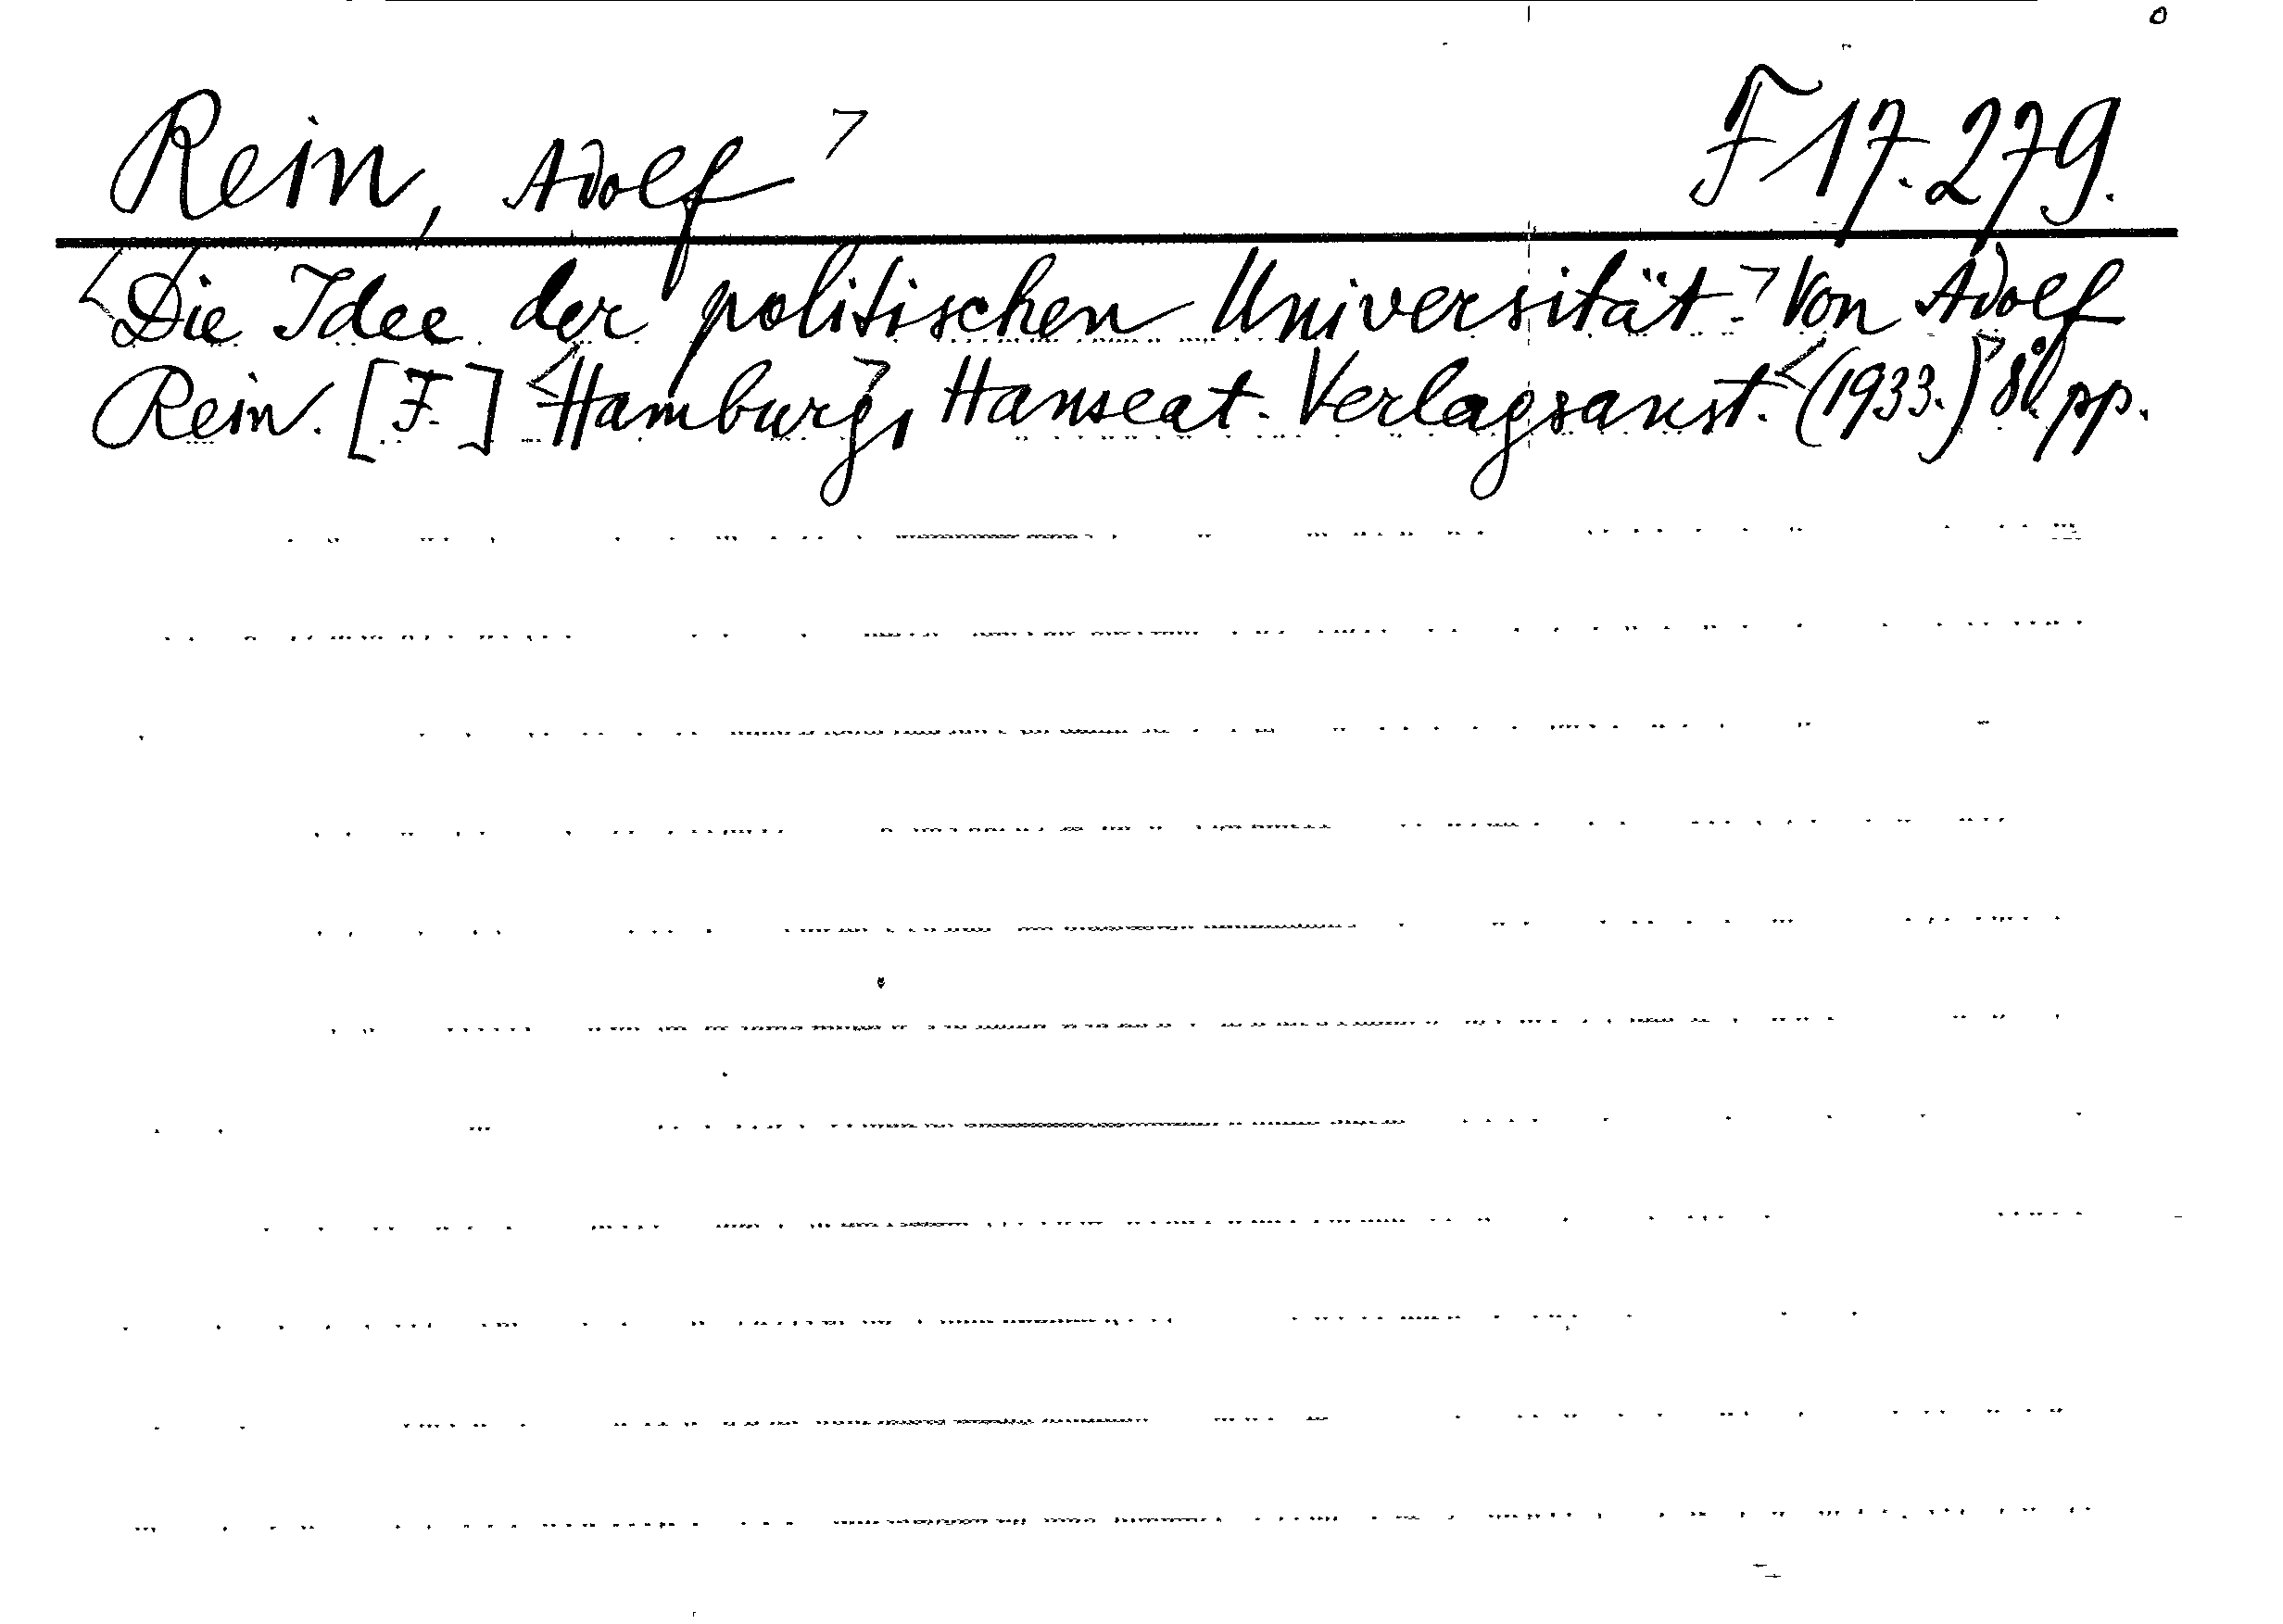 Rein, Adolf F 17.279.
Die Idee der politischen Universität. Von Adolf
Rein. [F.] Hamburg, Hanseat. Verlagsanst. (1933.) 8° pp.